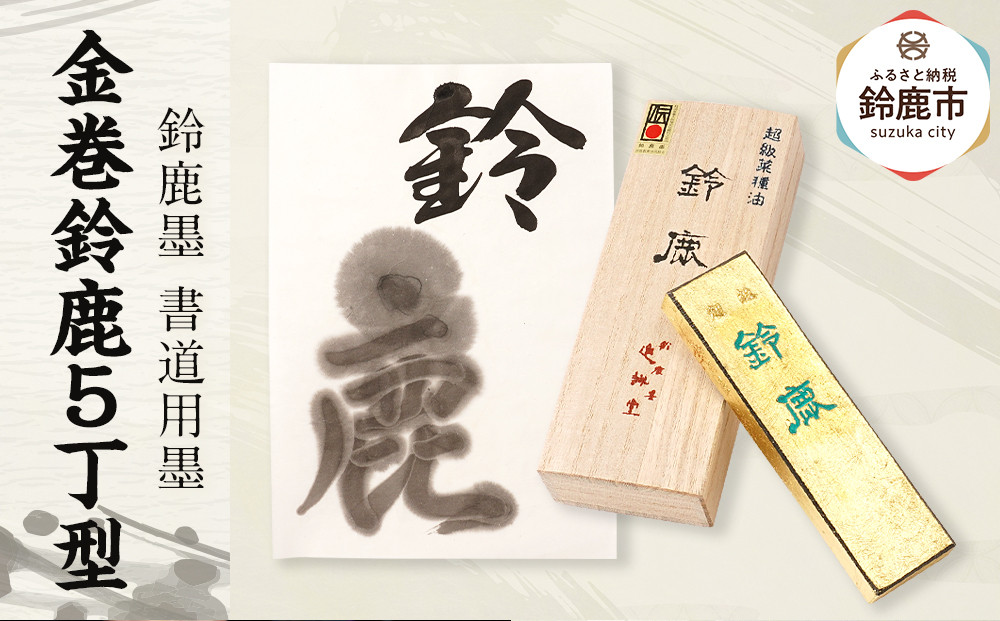 金巻鈴鹿5丁型
鈴鹿墨 書道用墨
鈴
鹿
超級菜種油
鈴鹿
鈴鹿
ふるさと納税
鈴鹿市
suzuka city